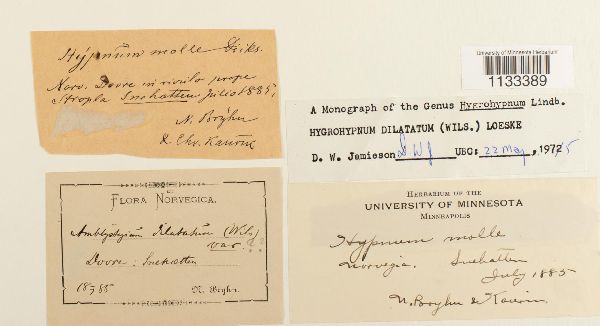 Hypnum molle Dicks.
Norv. Dovre in rivulo prope
Stropla Snehatten Julio 1885,
N. Bryhn
& Chr. Kaurin
University of Minnesota Herbarium
1133389
A Monograph of the Genus Hygrohypnum Lindb.
HYGROHYPNUM DILATATUM (WILS.) LOESKE
D. W. Jamieson DWJ UBC: 22 May, 1975
FLORA NORVEGICA.
Amblystegium dilatatum (Wils)
var ??
Dovre: Snehætten
18 85 N. Bryhn.
HERBARIUM OF THE
UNIVERSITY OF MINNESOTA
MINNEAPOLIS
Hypnum molle
Norvegia. Snehatten
July 1885
N. Bryhn & Kaurin.